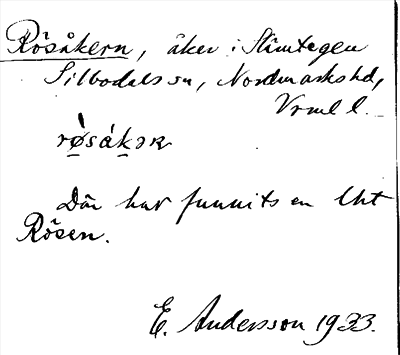 Rösåkern, åker i Slämtegen
Silbodals sn, Nordmarks hd,
Vrml l.
Där har funnits en lht
Rösen.
E. Andersson 1933.